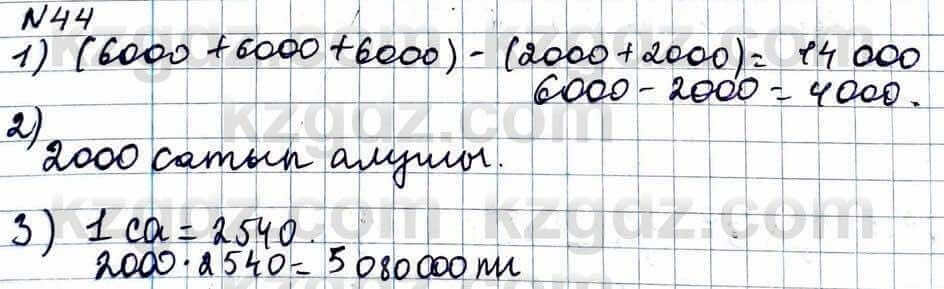 N44
1) (6000 + 6000 + 6000) - (2000 + 2000) = 14 000
6000 - 2000 = 4000.
2)
2000 сатып алушы.
3) 1 са = 2540.
2000 · 2540 = 5 080 000 тг
kzgdz.com kzgdz.com
kzgdz.com kzgdz.com